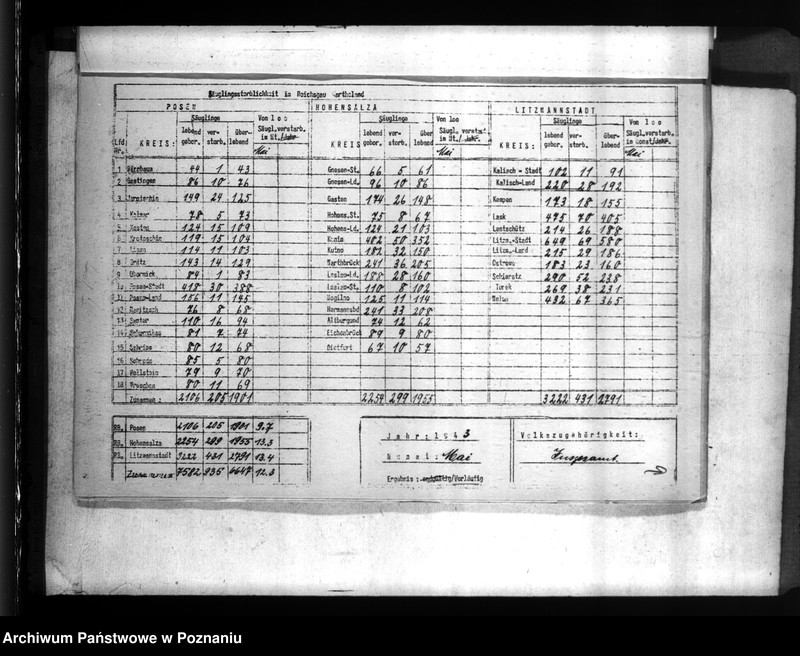 Säuglingssterblichkeit im Reichsgau Wartheland
POSEN HOHENSALZA LITZMANNSTADT
Lfd. Nr. KREIS: Säuglinge lebend gebor. verstorb. überlebend Von 100 Säugl. verstarb. im Mt./Jahr Mai
KREIS Säuglinge lebend gebor. verstorb. überlebend Von 100 Säugl. verstarb. im Mt./Jahr Mai
KREIS: Säuglinge lebend gebor. verstorb. überlebend Von 100 Säugl. verstarb. im Monat/Jahr Mai
1 Birnbaum 44 1 43 Gnesen-St. 66 5 61 Kalisch - Stadt 102 11 91
2 Gostingen 86 10 76 Gnesen-Ld. 96 10 86 Kalisch-Land 220 28 192
3 149 24 125 Gasten 174 26 148 Kempen 173 18 155
4 Kolmar 78 5 73 Hohens.St. 75 8 67 Lask 475 70 405
5 Kosten 124 15 109 Hohens-Ld. 124 21 103 Lentschütz 214 26 188
6 Krotoschin 119 15 104 Konin 402 50 352 Litzm.-Stadt 649 69 580
7 Lissa 114 11 103 Kutno 182 32 150 Litzm.-Land 215 29 186
8 Grätz 143 14 129 Warthbrück 241 36 205 Ostrowo 183 23 160
9 Obornick 84 1 83 Leslau-Ld. 188 28 160 Schieratz 290 52 238
10 Posen-Stadt 418 30 388 Leslau-St. 110 8 102 Turek 269 38 231
11 Posen-Land 156 11 145 Mogilno 125 11 114 Welun 432 67 365
12 Rawitsch 76 8 68 Hermannsbd 241 33 208
13 Samter 110 16 94 Altburgund 74 12 62
14 81 7 74 Eichenbrück 89 9 80
15 Schrimm 80 12 68 Dietfurt 67 10 57
16 Schroda 85 5 80
17 Wollstein 79 9 70
18 Wreschen 80 11 69
Zusammen: 2106 205 1901 2254 299 1955 3222 431 2791
RB. Posen 2106 205 1901 9.7
RB. Hohensalza 2254 299 1955 13.3
RB. Litzmannstadt 3222 431 2791 13.4
Zusammen 7582 935 6647 12.3
Jahr: 1943
Monat: Mai
Ergebnis: endgültig/Vorläufig
Volkszugehörigkeit:
Insgesamt
Archiwum Państwowe w Poznaniu